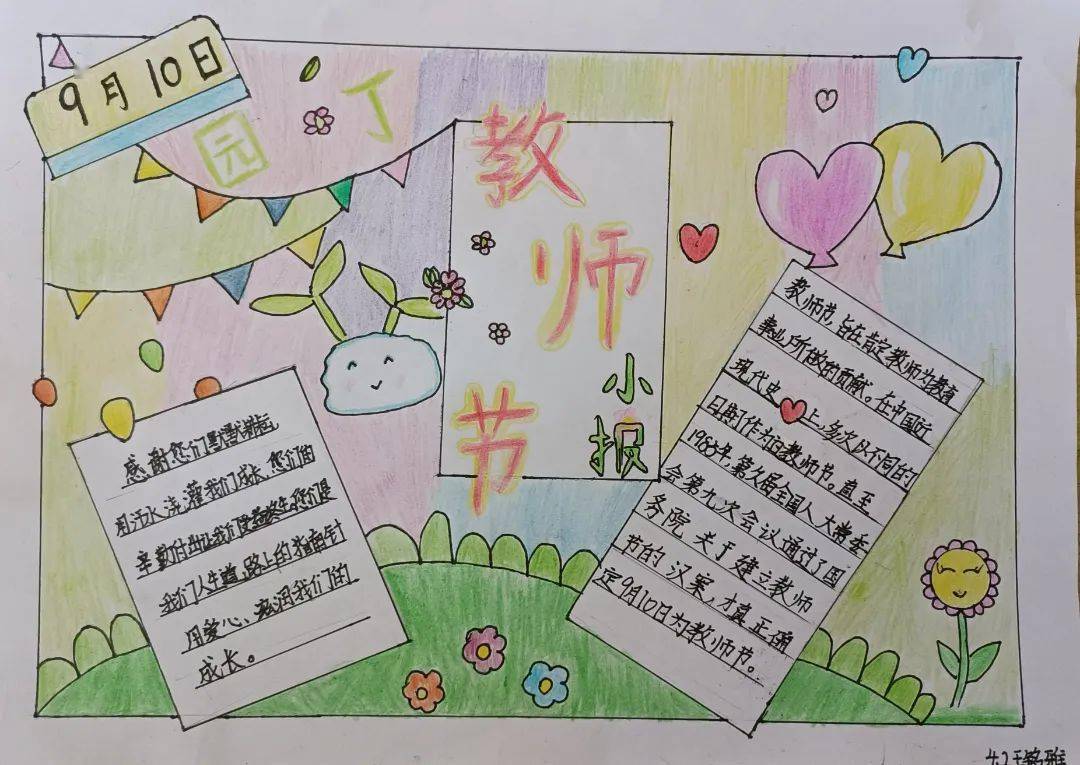 9月10日
园丁
教师节
小报
感谢您们
用汗水浇灌我们成长,您们的
辛勤付出让我们受益终生,您们是
我们人生道路上的指南针
用爱心、滋润我们的
成长。
教师节,旨在肯定教师为教育
事业所做的贡献。在中国近
现代史上,多次以不同的
日期作为教师节。直至
1985年,第六届全国人大常委
会第九次会议通过了国
务院关于建立教师
节的汉案,才真正确
定9月10日为教师节。